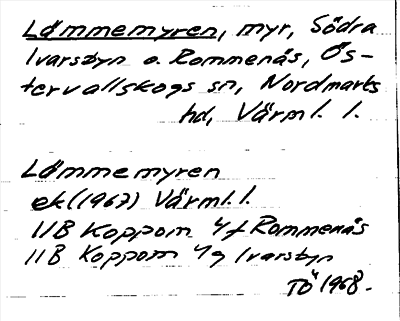 Lömmemyren, myr, Södra
Ivarsbyn o. Rommenäs, Ös-
tervallskogs sn, Nordmarks
hd, Värml. l.
Lömmemyren
ek (1967) Värml. l.
11B Koppom 4f Rommenäs
11B Koppom 4g Ivarsbyn
TÖ 1968.